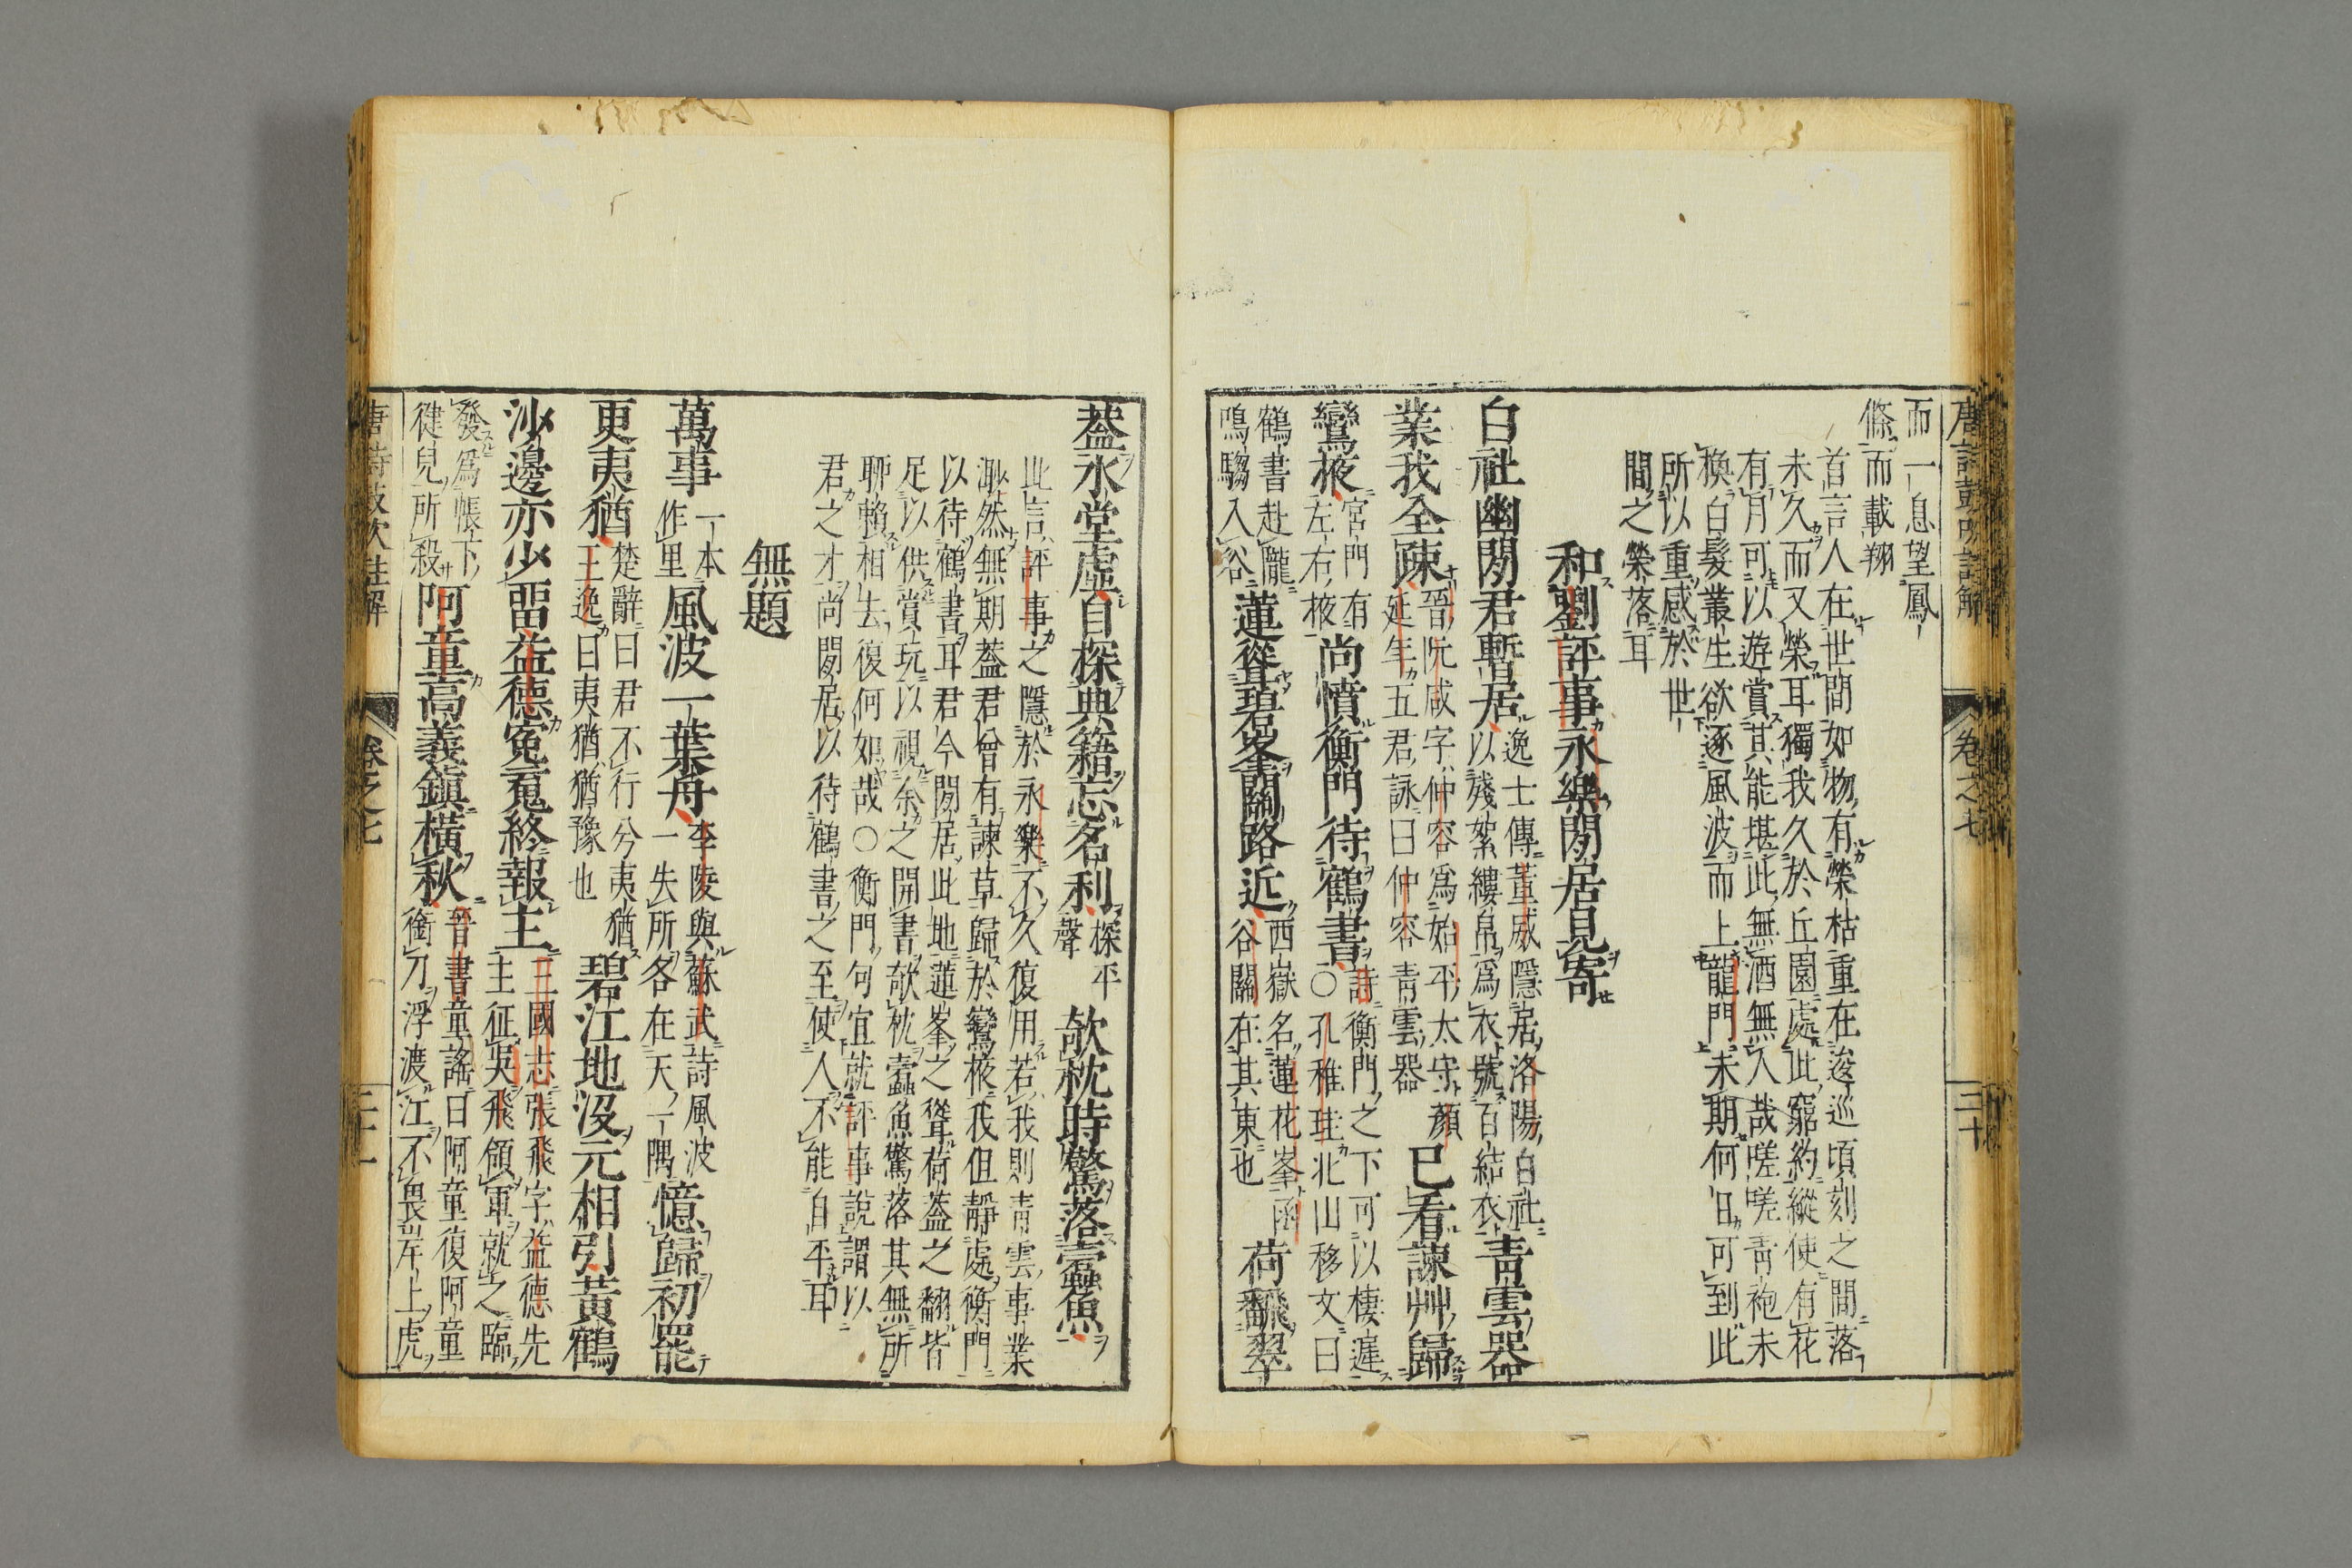 唐詩鼓吹註解
卷之七
三十
而一息望鳳
條而載翔
首言人在世間如物有榮枯重在逡巡頃刻之間落
未久而又榮耳獨我久於丘園處此窮約縱使有花
有月可以遊賞其能堪此無酒無人哉嗟嗟青袍未
換白髮叢生欲逐風波而上龍門未期何日可到此
所以重感於世
間之榮落耳
和劉評事永樂閒居見寄
白社幽閒君暫居
逸士傳董威隱居洛陽白社
以殘絮縷帛爲衣號百結衣
青雲器
業我全疎
晉阮咸字仲容爲始平太守顏
延年五君詠曰仲容青雲器
已看諫艸歸
鸞掖
宮門有
左右掖
尚憤衡門待鶴書
詩衡門之下可以棲遲
○孔稚珪北山移文曰
鶴書赴隴
鳴騶入谷
蓮聳碧峯關路近
西嶽名蓮花峯函
谷關在其東也
荷飜翠
葢水堂虛自探典籍忘名利
探平
聲
欹枕時驚落蠹魚
此言評事之隱於永樂不久復用若我則青雲事業
渺然無期葢君曾有諫草歸於鸞掖我但靜處衡門
以待鶴書耳君今閒居此地蓮峯之聳荷葢之翻皆
足以供賞玩以視余之開書欹枕蠹魚驚落其無所
聊賴相去復何如哉○衡門句宜就評事說謂以
君之才尚閒居以待鶴書之至使人不能自平耳
無題
萬事
一本
作里
風波一葉舟
李陵與蘇武詩風波
一失所各在天一隅
憶歸初罷
更夷猶
楚辭曰君不行兮夷猶
王逸曰夷猶猶豫也
碧江地沒元相引黃鶴
沙邊亦少畱益德寃䰟終報主
三國志張飛字益德先
主征吳飛領軍就之臨
發爲帳下
健兒所殺
阿童高義鎮橫秋
晉書童謠曰阿童復阿童
銜刀浮渡江不畏岸上虎
唐詩鼓吹註解
卷之七
三十一